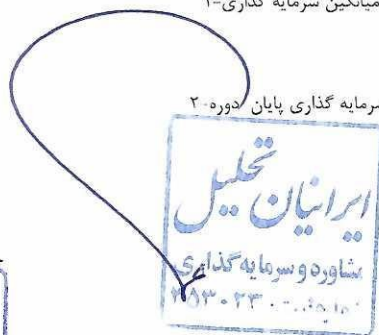 میانگین سرمایه گذاری-۱
سرمایه گذاری پایان دوره-۲
ایرانیان تحلیل
مشاوره و سرمایه گذاری